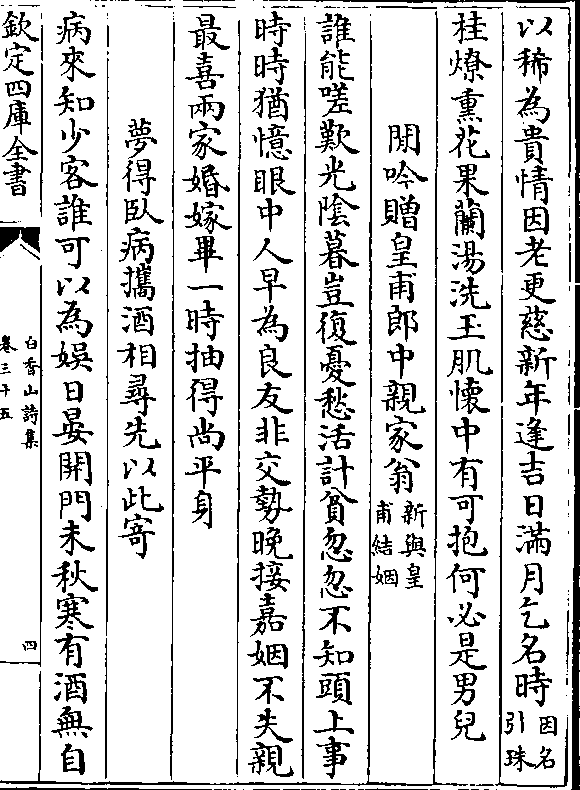 以稀為貴情因老更慈新年逢吉日滿月乞名時因名引珠
桂燎熏花果蘭湯洗玉肌懷中有可抱何必是男兒
閒吟贈皇甫郎中親家翁新與皇甫結姻
誰能嗟歎光陰暮豈復憂愁活計貧忽忽不知頭上事
時時猶憶眼中人早為良友非交勢晚接嘉姻不失親
最喜兩家婚嫁畢一時抽得尚平身
夢得臥病攜酒相尋先以此寄
病來知少客誰可以為娛日晏開門未秋寒有酒無自
欽定四庫全書
白香山詩集
卷三十五
四